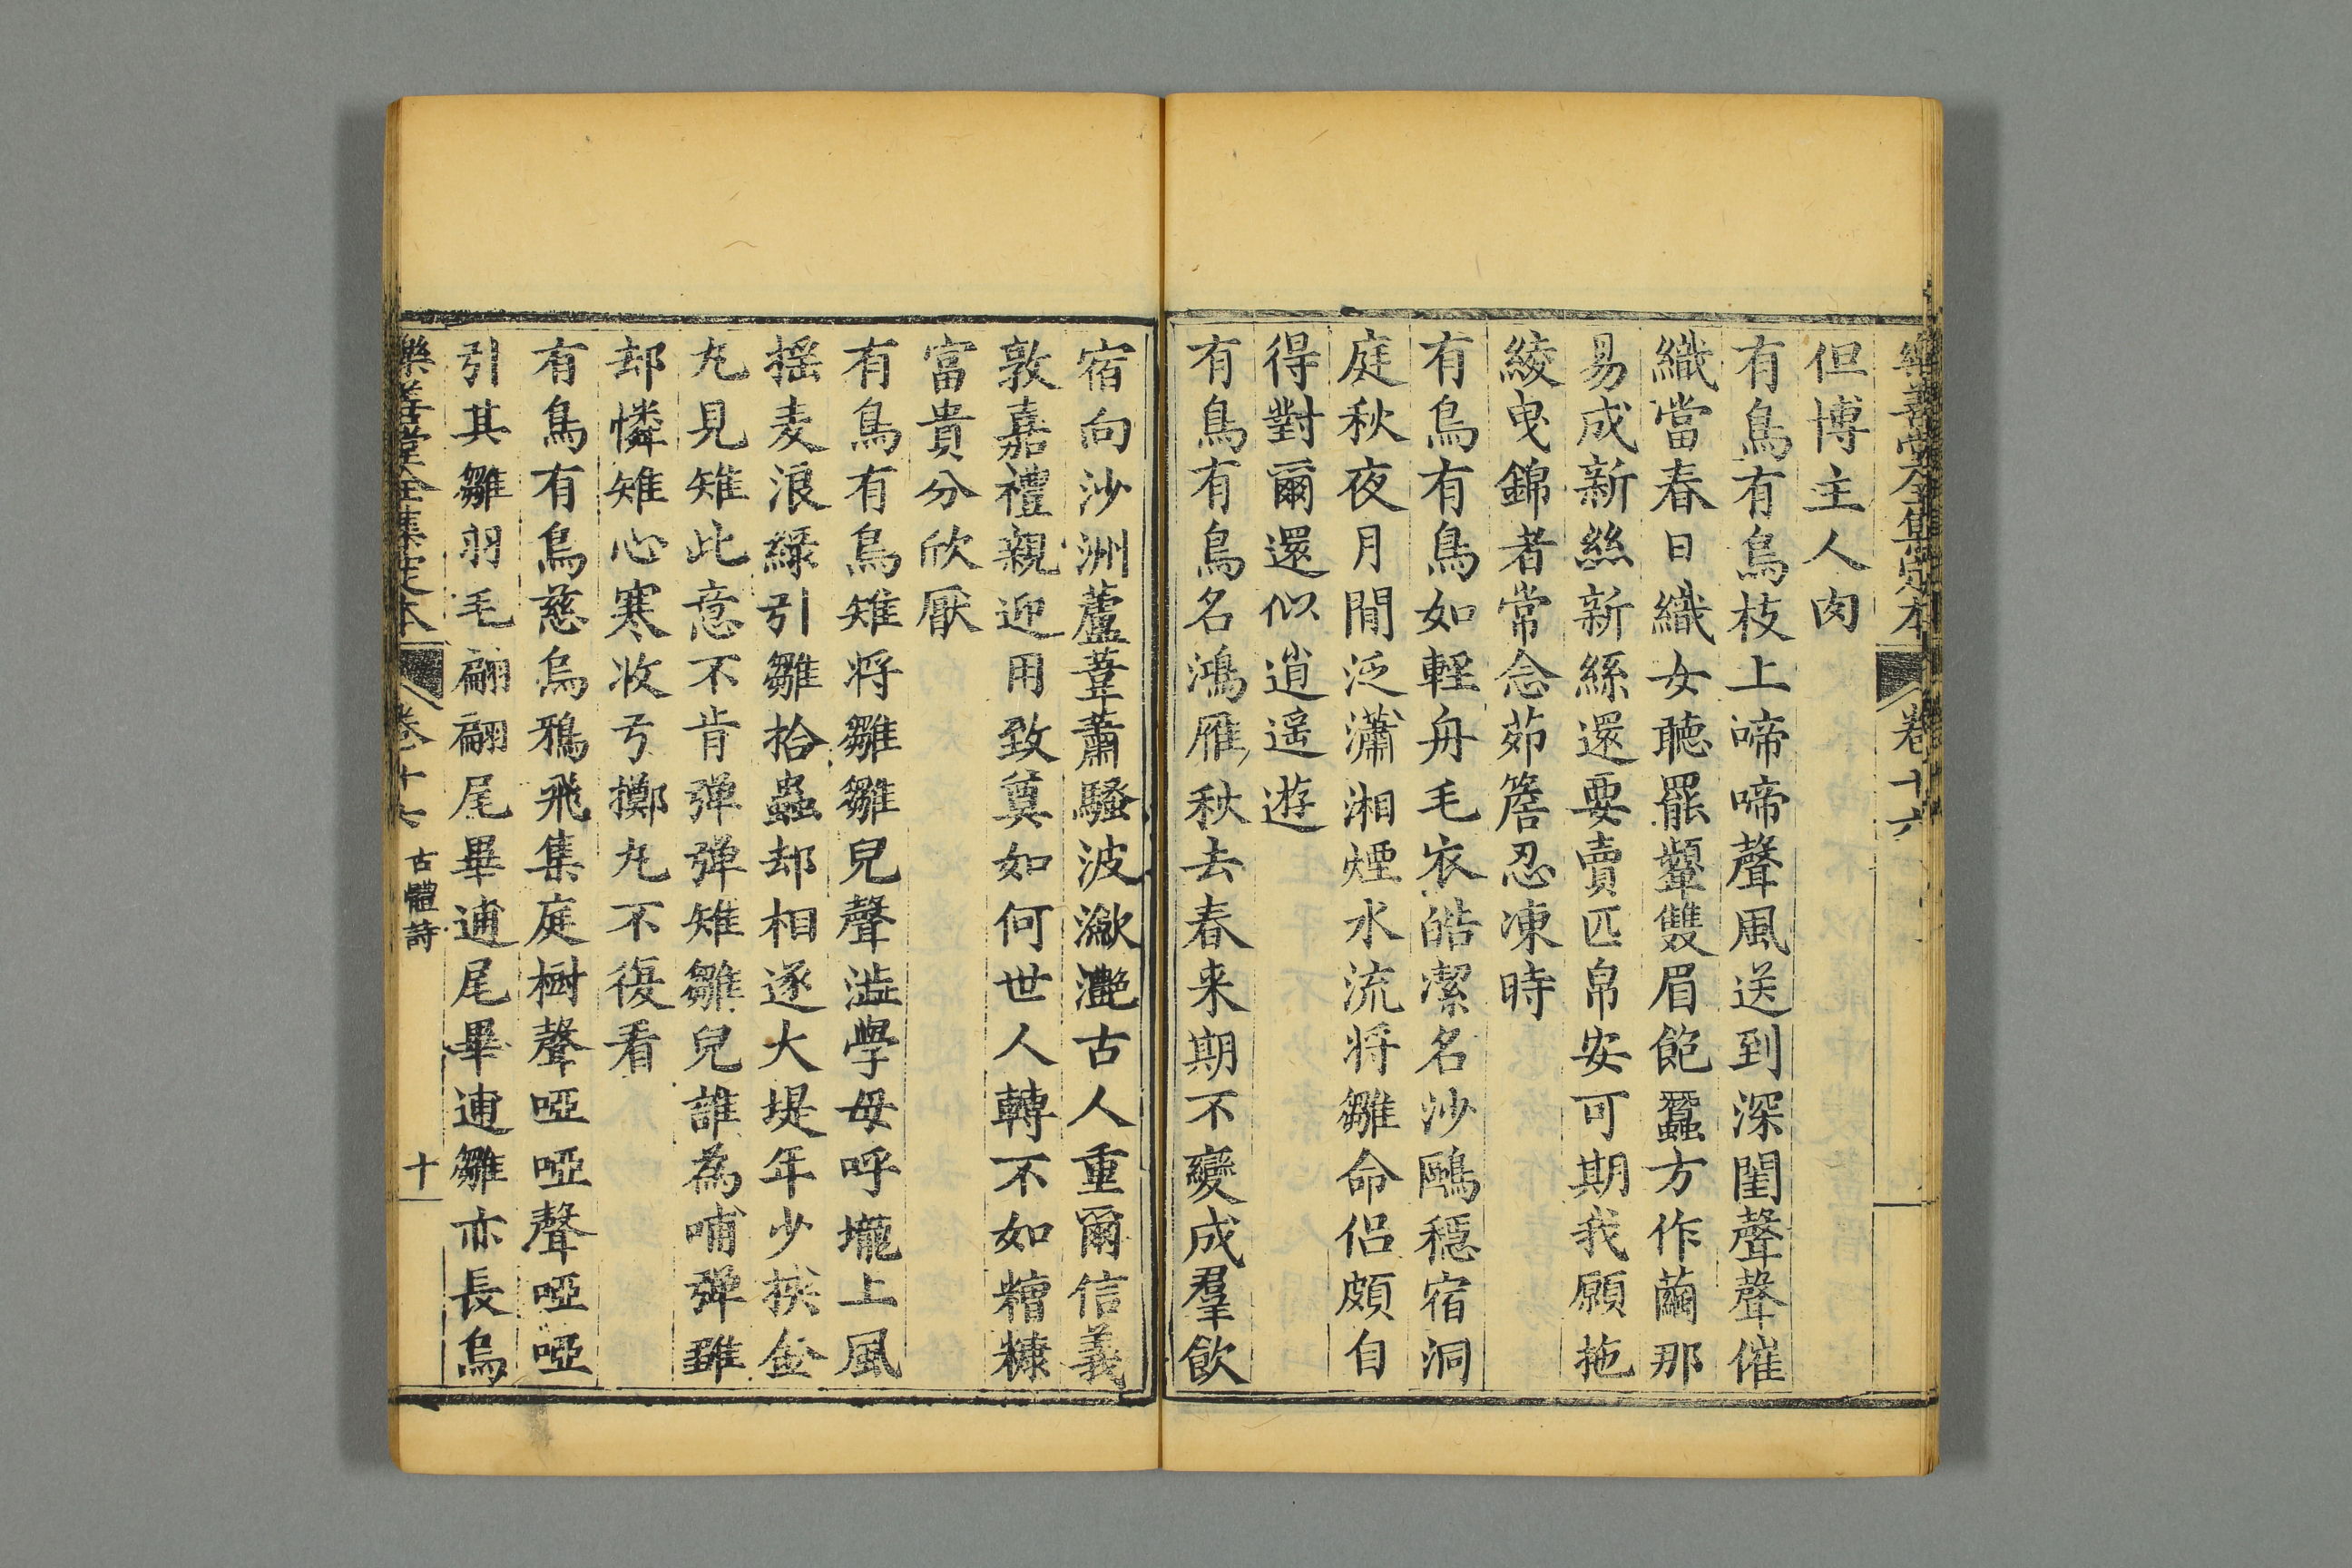 樂善堂全集定本 卷十六
但博主人肉
有鳥有鳥枝上啼啼聲風送到深閨聲聲催
織當春日織女聴罷顰雙眉飽蠶方作繭那
易成新絲新絲還要賣匹帛安可期我願拖
綾曳錦者常念茆簷忍凍時
有鳥有鳥如輕舟毛衣皓潔名沙鷗穩宿洞
庭秋夜月閒泛瀟湘煙水流将雛命侣頗自
得對爾還似逍遥遊
有鳥有鳥名鴻雁秋去春来期不變成羣飲
宿向沙洲蘆葦蕭騷波瀲灧古人重爾信義
敦嘉禮親迎用致奠如何世人轉不如糟糠
富貴分欣厭
有鳥有鳥雉将雛雛兒聲澁學母呼壠上風
揺麦浪緑引雛拾蟲却相逐大堤年少挾金
丸見雉此意不肯弹弹雉雛兒誰為哺弹雛
却憐雉心寒收弓擲丸不復看
有鳥有鳥慈烏鴉飛集庭樹聲啞啞聲啞啞
引其雛羽毛翩翩尾畢逋尾畢逋雛亦長烏
樂善堂全集定本 卷十六 古體詩 十